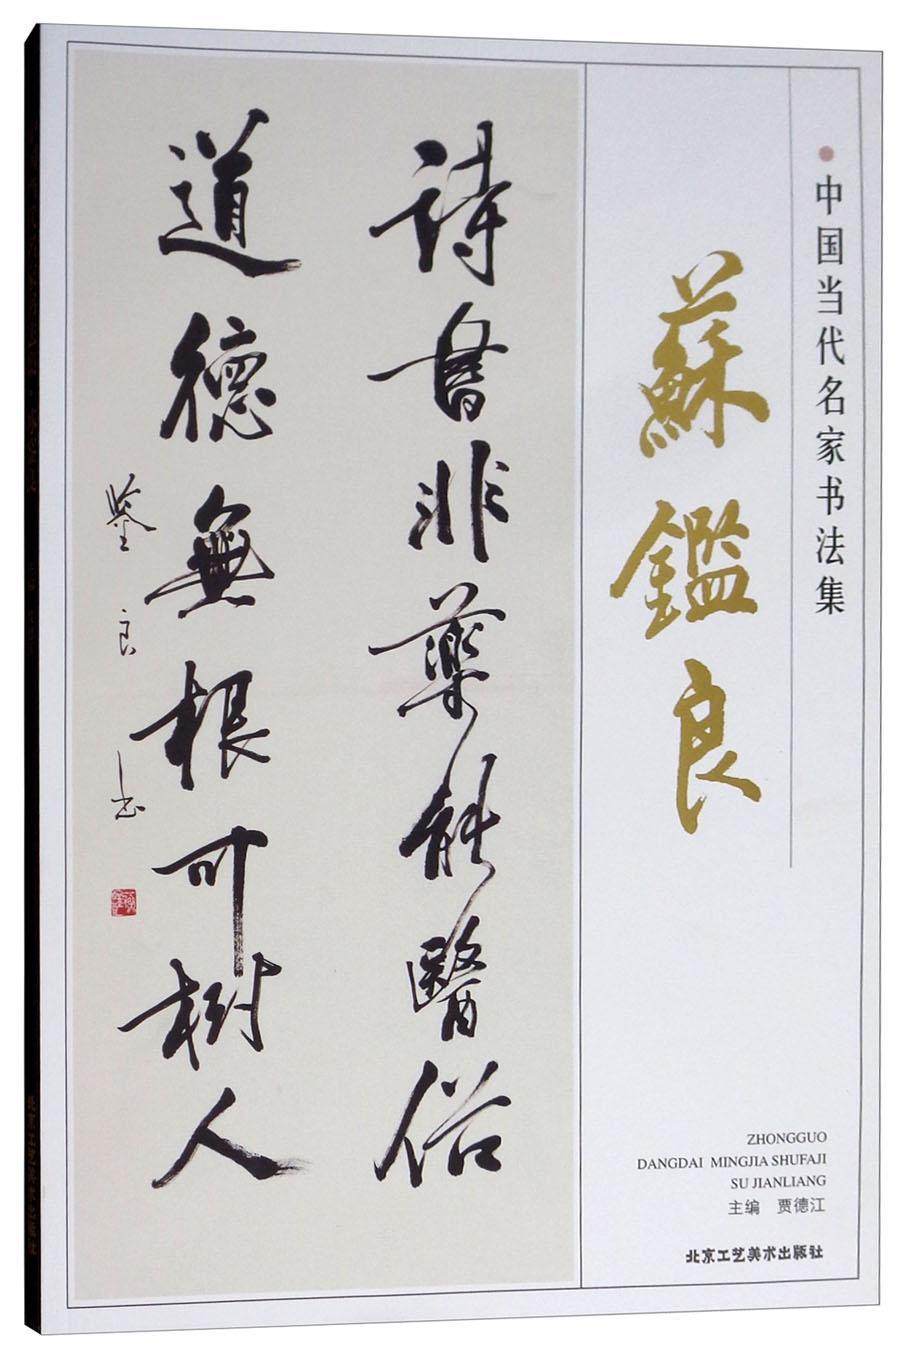 中国当代名家书法集
蘇鑑良
詩書非藥能醫俗
道德無根可樹人
鉴良书
ZHONGGUO
DANGDAI MINGJIA SHUFAJI
SU JIANLIANG
主编 贾德江
北京工艺美术出版社